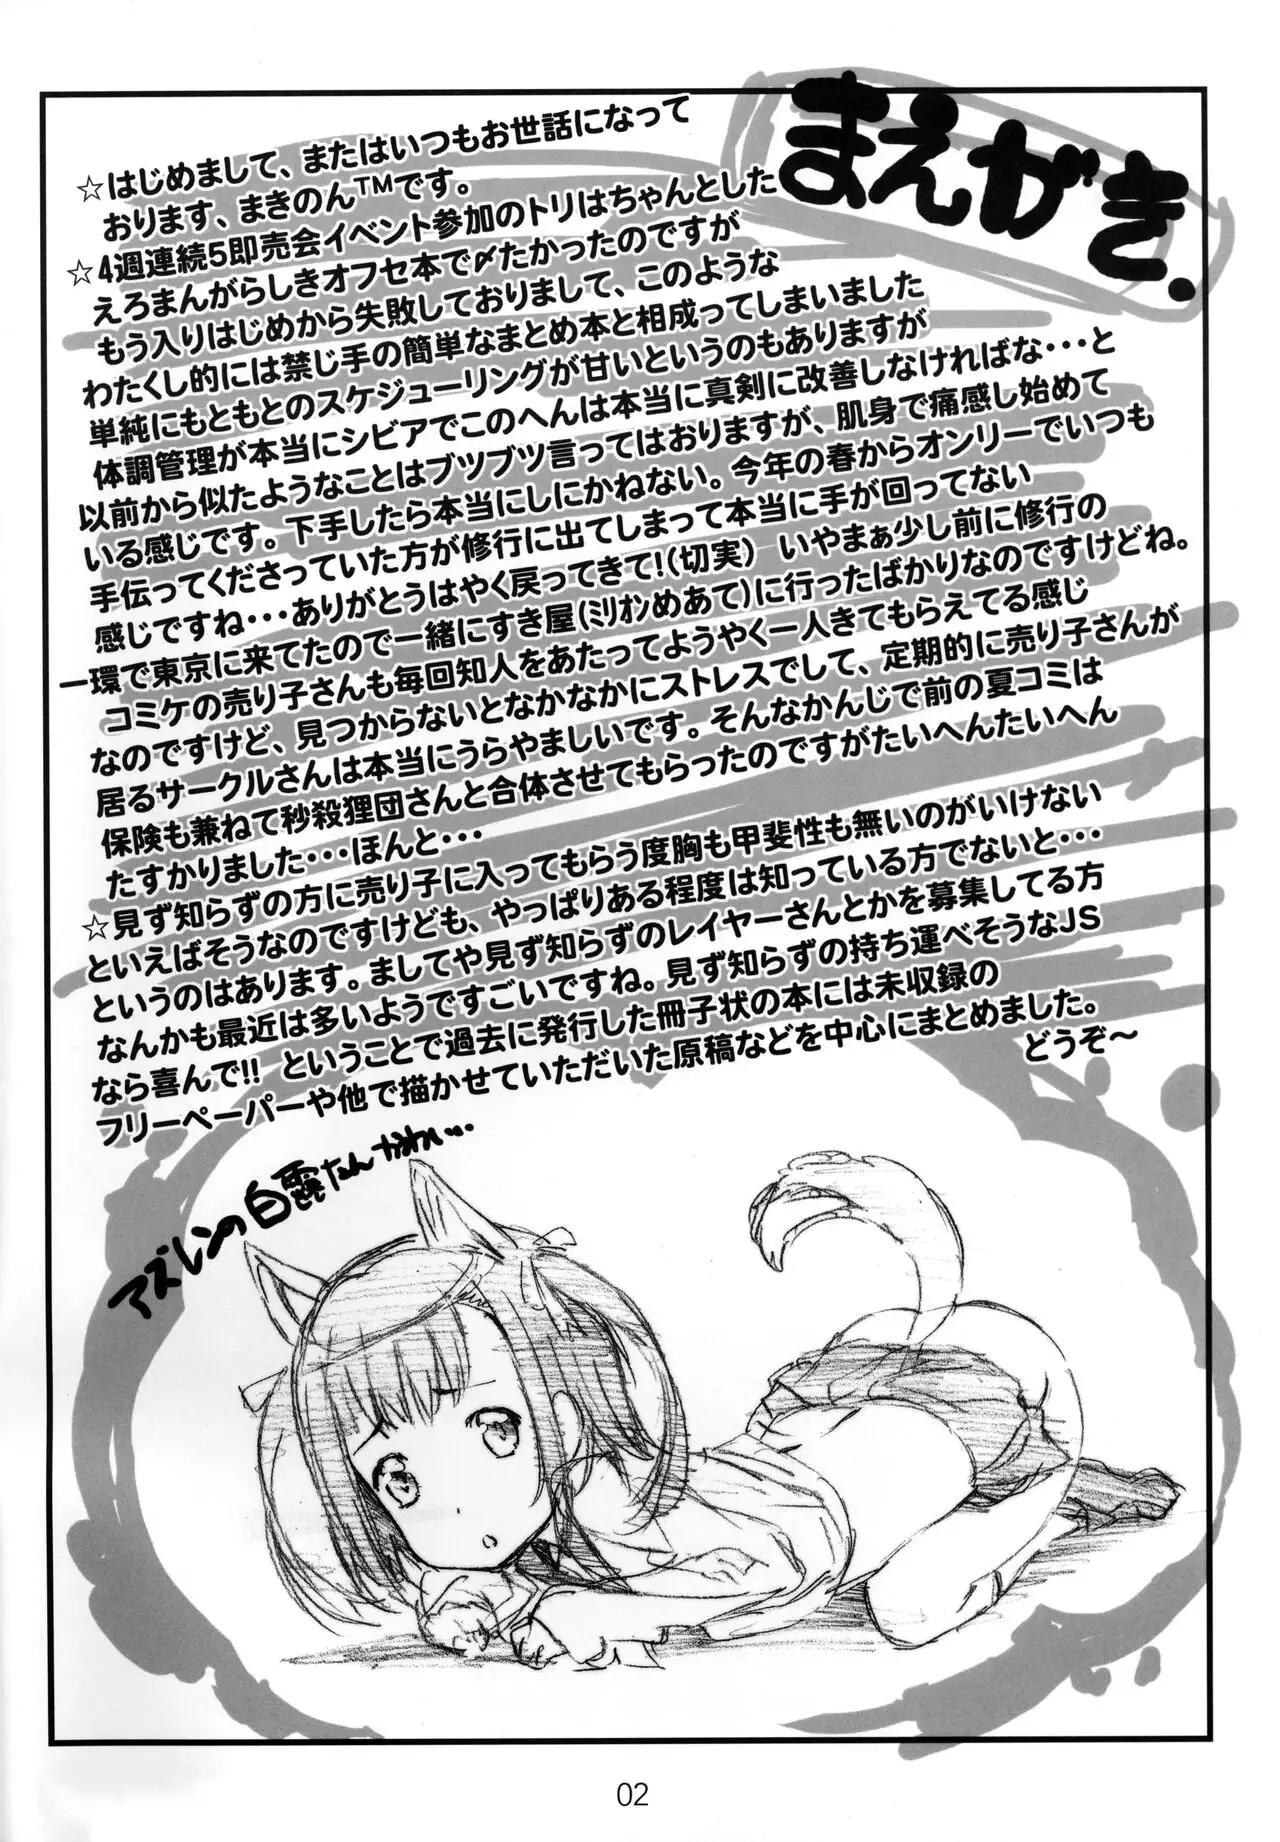 まえがき.
☆はじめまして、またはいつもお世話になって
おります、まきのん™です。
☆4週連続5即売会イベント参加のトリはちゃんとした
えろまんがらしきオフセ本で〆たかったのですが
もう入りはじめから失敗しておりまして、このような
わたくし的には禁じ手の簡単なまとめ本と相成ってしまいました
単純にもともとのスケジューリングが甘いというのもありますが
体調管理が本当にシビアでこのへんは本当に真剣に改善しなければな・・・と
以前から似たようなことはブツブツ言ってはおりますが、肌身で痛感し始めて
いる感じです。下手したら本当にしにかねない。今年の春からオンリーでいつも
手伝ってくださっていた方が修行に出てしまって本当に手が回ってない
感じですね・・・ありがとうはやく戻ってきて!(切実) いやまぁ少し前に修行の
一環で東京に来てたので一緒にすき屋(ﾐﾘｵﾝめあて)に行ったばかりなのですけどね。
コミケの売り子さんも毎回知人をあたってようやく一人きてもらえてる感じ
なのですけど、見つからないとなかなかにストレスでして、定期的に売り子さんが
居るサークルさんは本当にうらやましいです。そんなかんじで前の夏コミは
保険も兼ねて秒殺狸団さんと合体させてもらったのですがたいへんたいへん
たすかりました・・・ほんと・・・
☆見ず知らずの方に売り子に入ってもらう度胸も甲斐性も無いのがいけない
といえばそうなのですけども、やっぱりある程度は知っている方でないと・・・
というのはあります。ましてや見ず知らずのレイヤーさんとかを募集してる方
なんかも最近は多いようですごいですね。見ず知らずの持ち運べそうなJS
なら喜んで!! ということで過去に発行した冊子状の本には未収録の
フリーペーパーや他で描かせていただいた原稿などを中心にまとめました。
どうぞ～
アズレンの白露たんかわい…
02